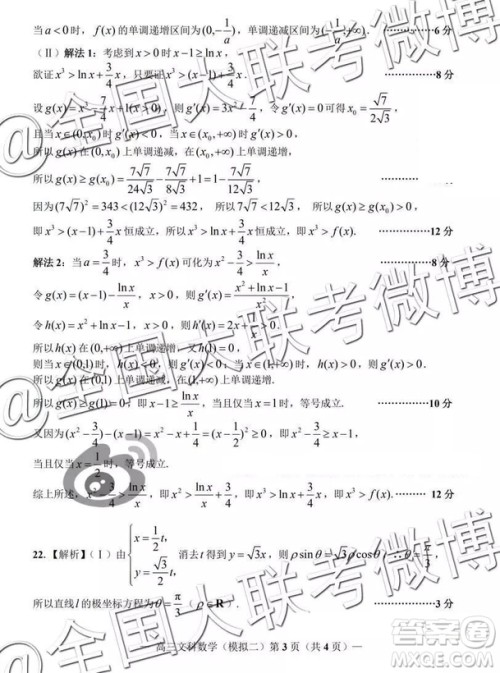 当a<0时，f(x)的单调递增区间为(0,-1/a)，单调递减区间为(-1/a,+∞). ………… 6分
(Ⅱ) 解法1：考虑到x>0时x-1≥ln x，
欲证x³>ln x+3/4 x，只要证x³>(x-1)+3/4 x. ………… 8分
设g(x)=x³-7/4 x+1(x>0)，则g′(x)=3x²-7/4，令g′(x)=0可得x₀=√7/(2√3)，
且当x∈(0,x₀)时g′(x)<0，当x∈(x₀,+∞)时g′(x)>0，
所以g(x)在(0,x₀)上单调递减，在(x₀,+∞)上单调递增，
所以g(x)≥g(x₀)=7√7/(24√3)-7√7/(8√3)+1=1-7√7/(12√3)，
因为(7√7)²=343<(12√3)²=432，所以g(x)≥g(x₀)>0，
即x³>(x-1)+3/4 x恒成立，所以x³>f(x). ………… 12分
解法2：当a=3/4时，x³>f(x)可化为x²-3/4>ln x/x，
令g(x)=(x-1)-ln x/x，则g′(x)=(x²+ln x-1)/x²，
令h(x)=x²+ln x-1，则h′(x)=2x+1/x>0，
所以h(x)在(0,+∞)上单调递增，又h(1)=0，
所以当x∈(0,1)时，g′(x)<0，当x∈(1,+∞)时，g′(x)>0，
所以g(x)在(0,1)上单调递减，在(1,+∞)上单调递增.
所以g(x)≥g(1)=0，即x-1≥ln x/x，当且仅当x=1时，等号成立. ………… 10分
又因为(x²-3/4)-(x-1)=(x-1/2)²≥0，所以x²-3/4≥x-1，
当且仅当x=1/2时，等号成立.
综上所述，x²-3/4>ln x/x，即x²>ln x/x+3/4，即x³>f(x). ………… 12分
22.【解析】(Ⅰ) 由{x=1/2 t, y=√3/2 t, 消去t得到y=√3x，则ρsinθ=√3ρcosθ，∴θ=π/3，
所以直线l的极坐标方程为θ=π/3 (ρ∈R). ………… 3分
高三文科数学（模拟二）第3页（共4页）—
@全国大联考微博
@全国大联考微博
答案圈